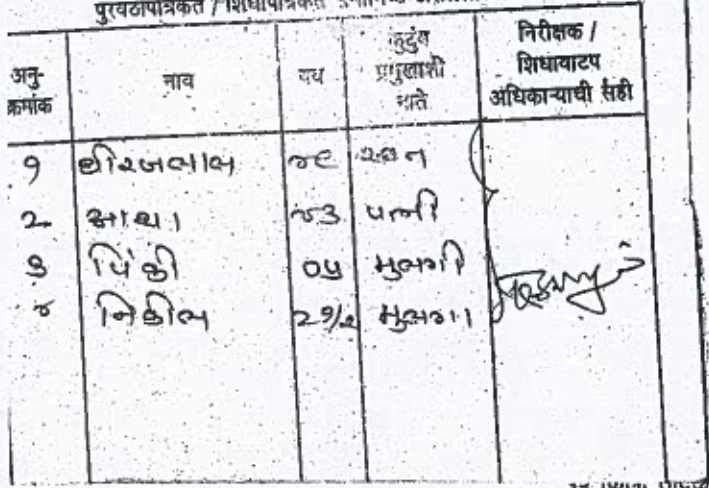 पुरवठापत्रिकेत / शिधापत्रिकेत
अनु-क्रमांक नाव वय कुटुंब प्रमुखाशी नाते निरीक्षक / शिधावाटप अधिकाऱ्याची सही
१ धीरजलाल ४९
२ आशा ४३ पत्नी
३ पिंकी ०५ मुलगी
४ निखील २१/२ मुलगा